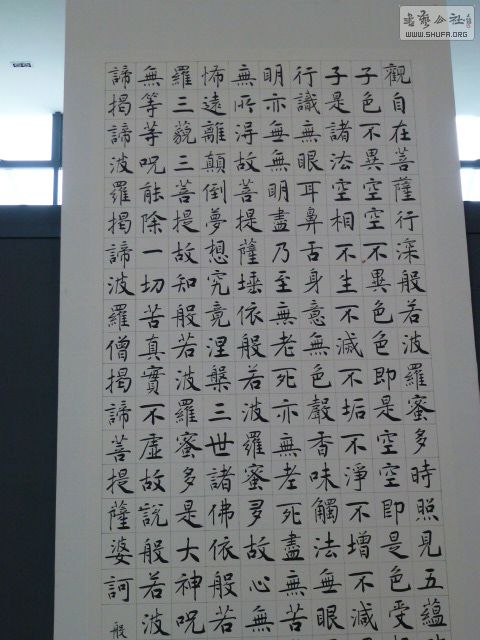 觀自在菩薩行深般若波羅蜜多時照見五蘊
子色不異空空不異色色即是空空即是色受
子是諸法空相不生不滅不垢不淨不增不減
行識無眼耳鼻舌身意無色聲香味觸法無眼
明亦無無明盡乃至無老死亦無老死盡無苦
無所得故菩提薩埵依般若波羅蜜多故心無
怖遠離顛倒夢想究竟涅槃三世諸佛依般若
羅三藐三菩提故知般若波羅蜜多是大神呪
無等等呪能除一切苦真實不虛故說般若波
諦揭諦波羅揭諦波羅僧揭諦菩提薩婆訶
般
書藝公社
WWW.SHUFA.ORG